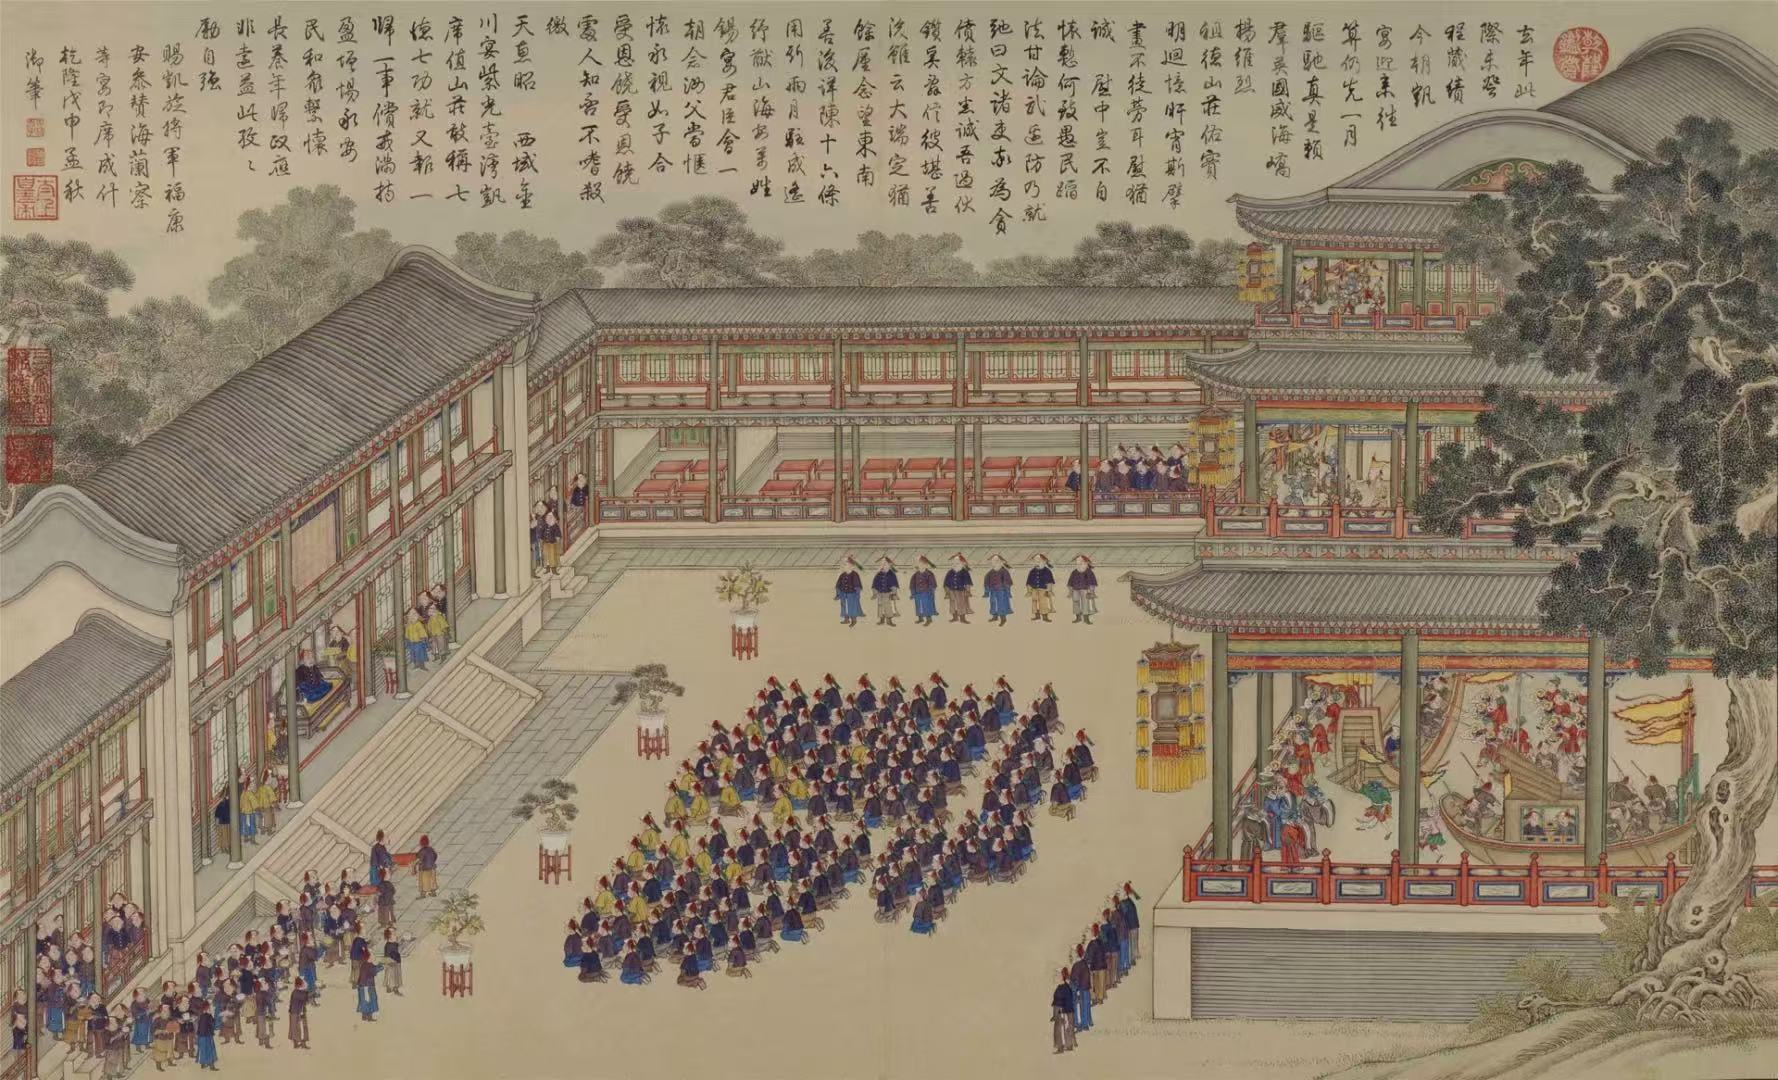 去年此
際未登
程藏績
今朝凱
宴迎來往
算仍先一月
驅馳真是賴
羣英國威海嶠
揚維烈
祖德山莊佑實
明迴憶旰宵斯擘
畫不徒勞耳慰猶
誠 慰中豈不自
何致愚民蹈
法甘論武遐防乃就
弛曰文諸吏率為貪
債轅方 誠吾過伏
鑕奚 彼堪善
後雖云大端定猶
餘厪念望東南
善後詳陳十六條
用行兩月駐成遙
紓猷山海安萬姓
錫宴君臣會一
朝会 父當愜
懷永視如子合
受恩饒受恩饒
處人知否不嗜殺
徼
天恵昭 西域金
川宴紫光臺灣凱
席值山莊敢稱七
德七功就又報一
歸一事 滿持
盈增惕永安
民和衆繫懷
長養年歸政應
非遠益此孜〻
勵自強
賜凱旋將軍福康
安參贊海蘭察
等宴即席成什
乾隆戊申孟秋
御筆
太上皇帝